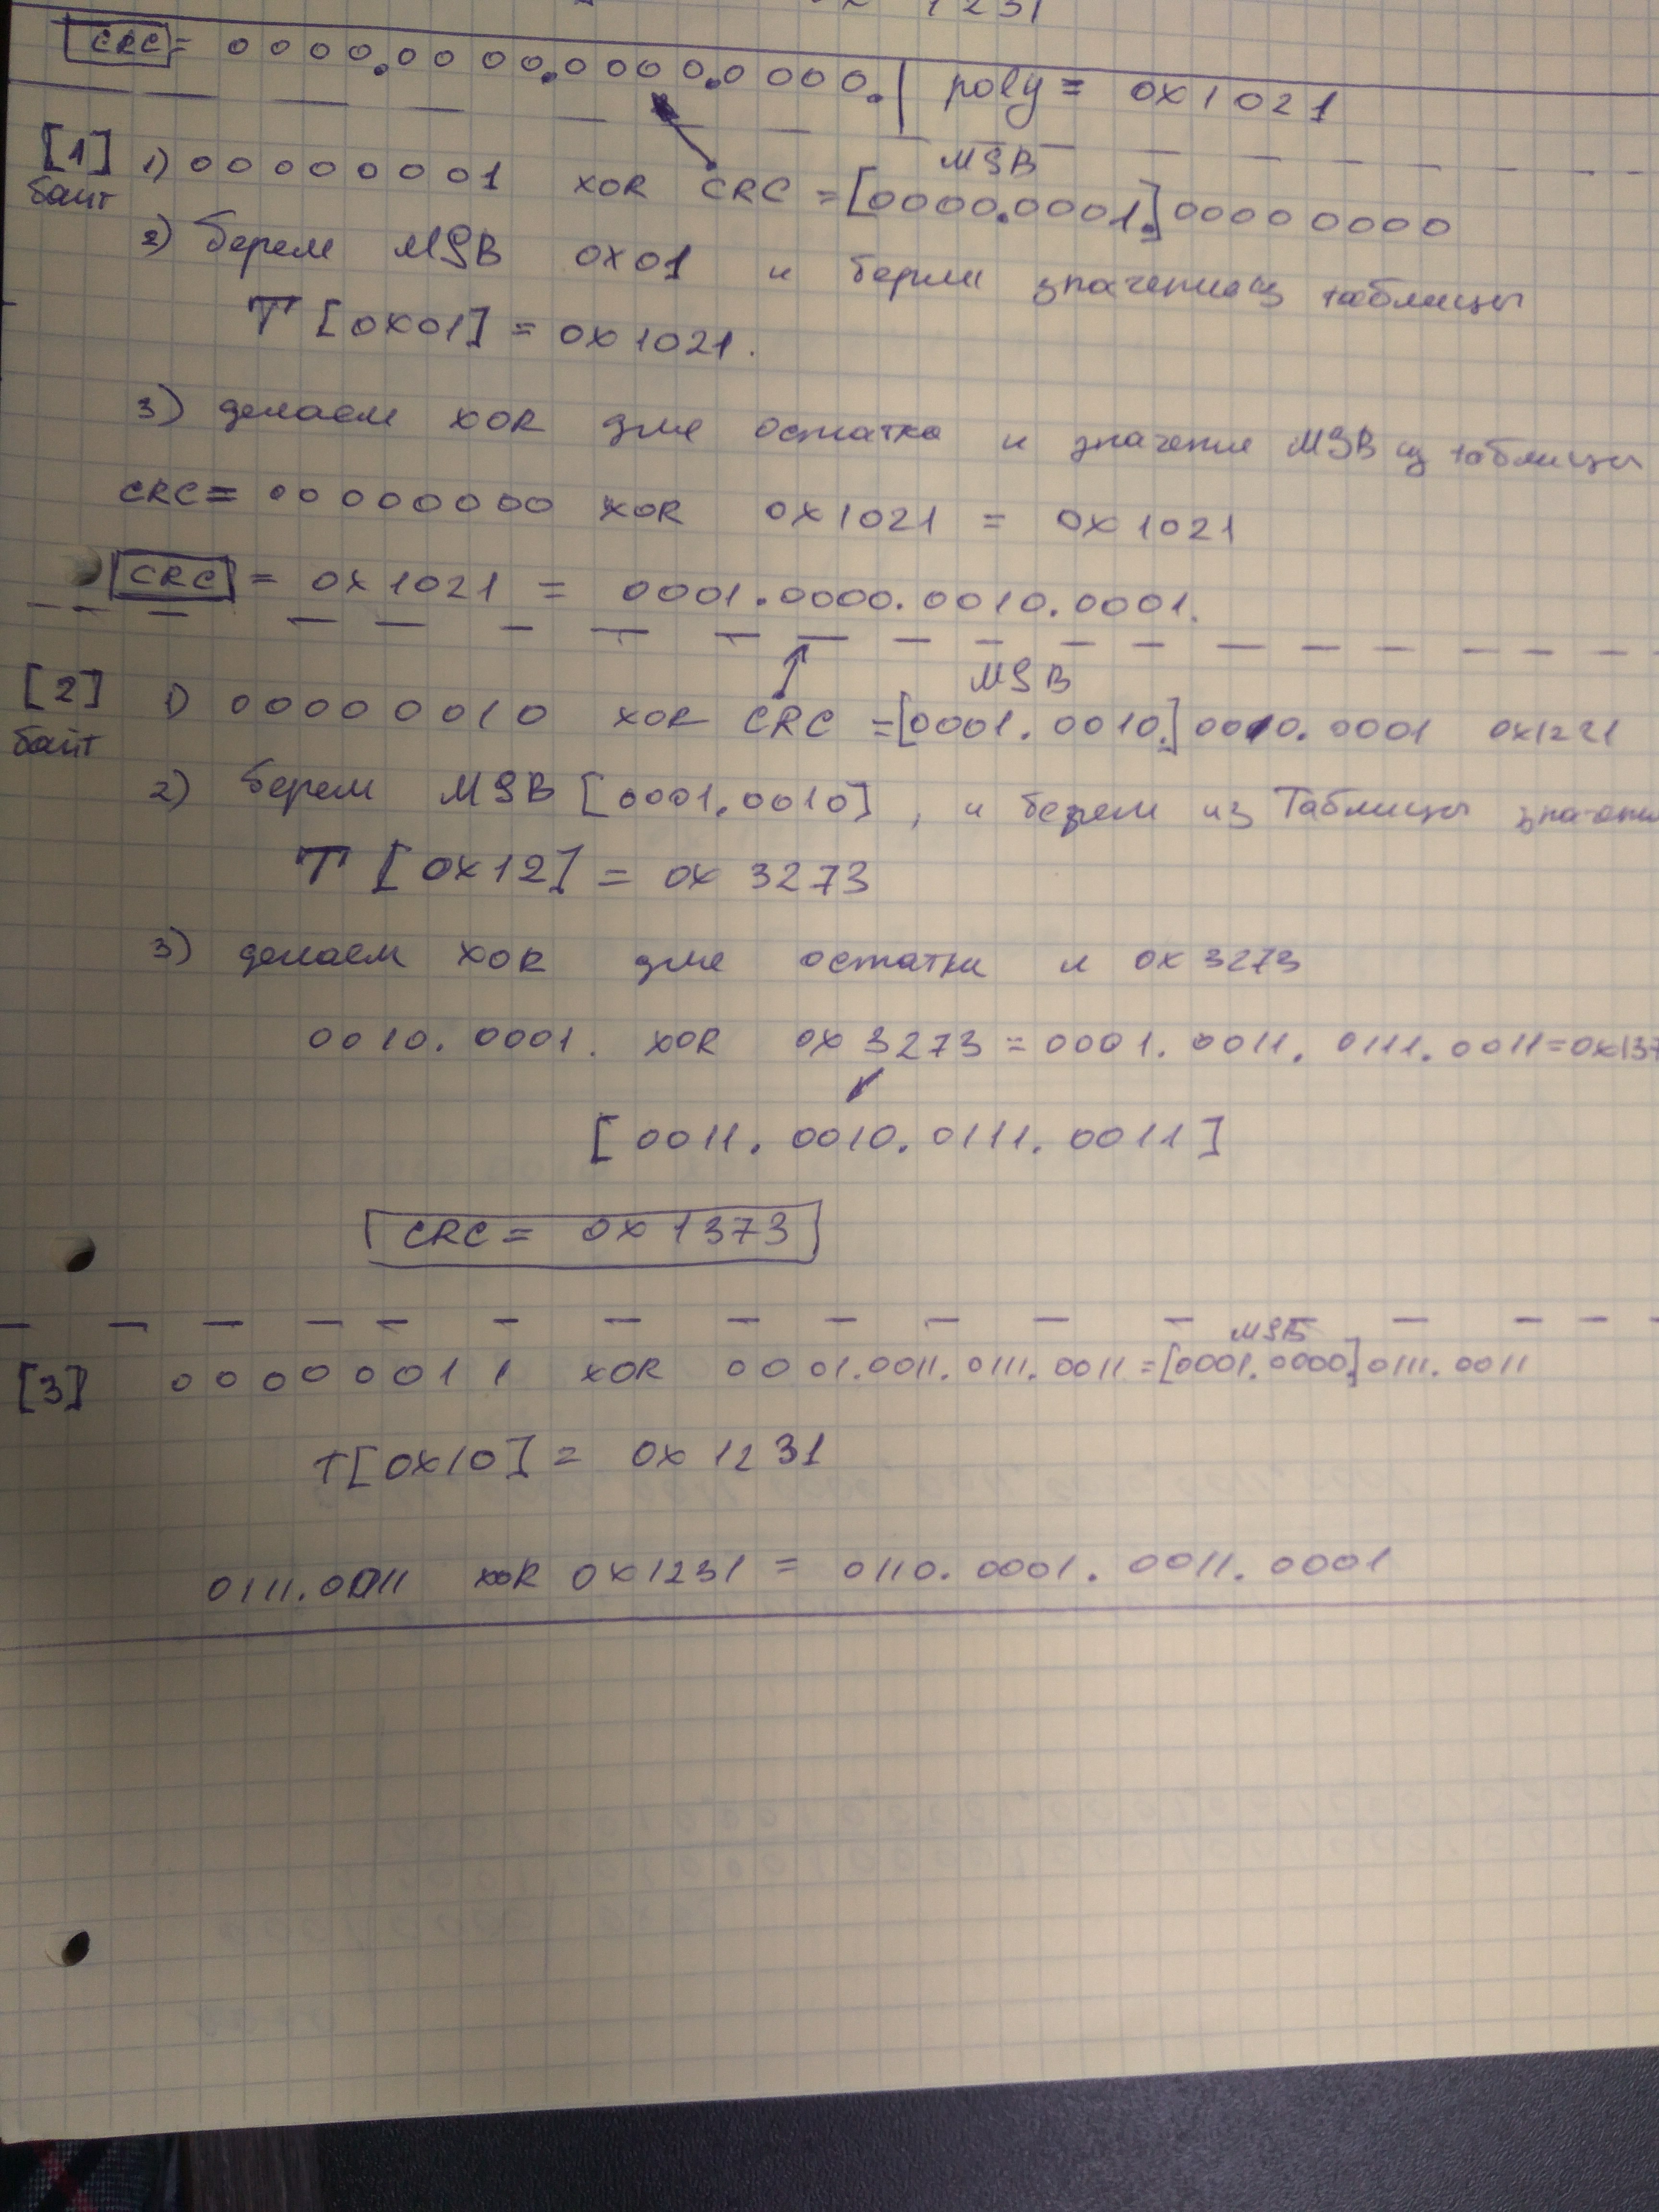 1231
CRC = 0000.0000.0000.0000. | poly = 0x1021
MSB
[1] 1) 00000001 XOR CRC = [0000.0001.] 00000000
байт
2) берем MSB 0x01 и берем значение из таблицы
T [0x01] = 0x1021.
3) делаем XOR для остатка и значение MSB из таблицы
CRC = 00000000 XOR 0x1021 = 0x1021
CRC = 0x1021 = 0001.0000.0010.0001.
MSB
[2] 1) 00000010 XOR CRC = [0001.0010.] 0010.0001 0x1221
байт
2) берем MSB [0001.0010], и берем из Таблицы
T [0x12] = 0x3273
3) делаем XOR для остатка и 0x3273
0010.0001. XOR 0x3273 = 0001.0011.0111.0011 = 0x137
[0011.0010.0111.0011]
CRC = 0x1373
MSB
[3] 00000011 XOR 0001.0011.0111.0011 = [0001.0000.] 0111.0011
T[0x10] = 0x1231
0111.0011 XOR 0x1231 = 0110.0001.0011.0001